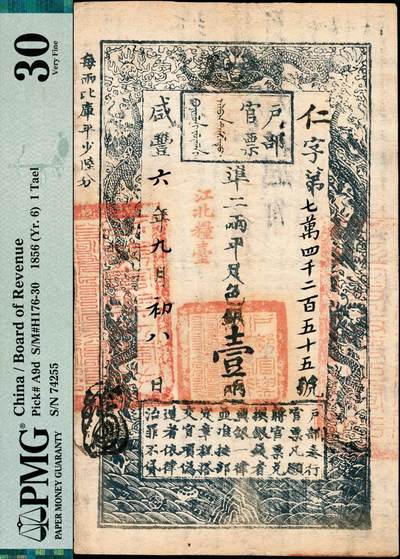 30
Very Fine
China / Board of Revenue
Pick# A9d S/M#H176-30 1856 (Yr. 6) 1 Tael
S/N 74255
PMG
PAPER MONEY GUARANTY
每兩比庫平少陸分
戶部
官票
仁字第七萬四千二百五十五號
準二兩平足色銀壹兩
江北糧臺
咸豐六年九月初八日
戶部奏行
官票凡願
將官票兌
換銀錢者
與銀一律
並准按部
定章程搭
交官項偽
造者依律
治罪不貸